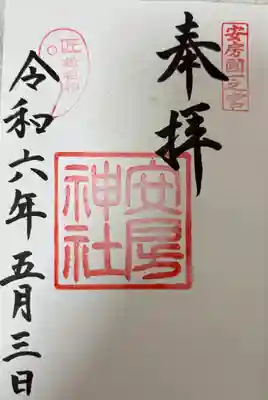 安房國一之宮
奉拝
安房
神社
令和六年五月三日